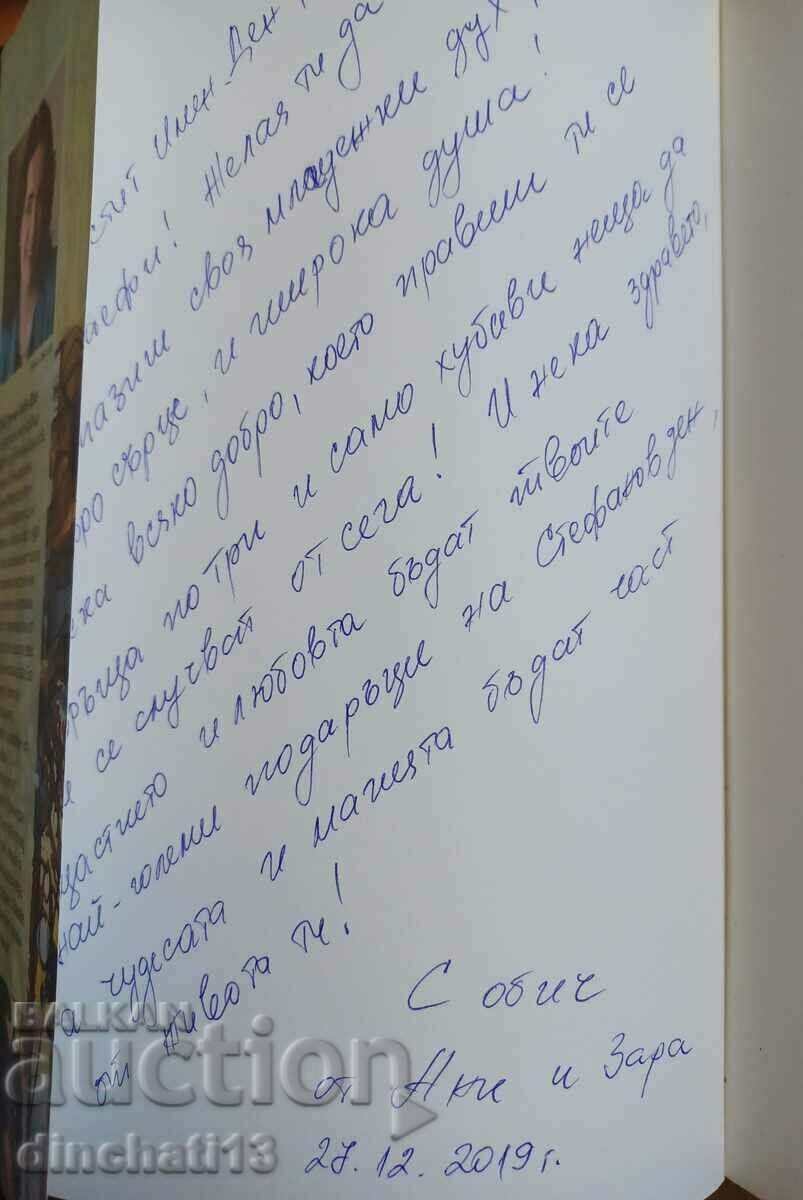 стит Имен-Ден
тефои! Желая ти да
пазиш своя младежки дух,
бро сърце, и широка душа!
ека всяко добро, което правиш ти се
връща по три и само хубави неща да
се случват от сега! И нека здравето,
щастието и любовта бъдат твоите
най-големи подаръци на Стефановден,
а чудесата и магията бъдат част
от живота ти!
С обич
от Ани и Зара
27.12.2019г.
BALKAN
auction
dinchati13